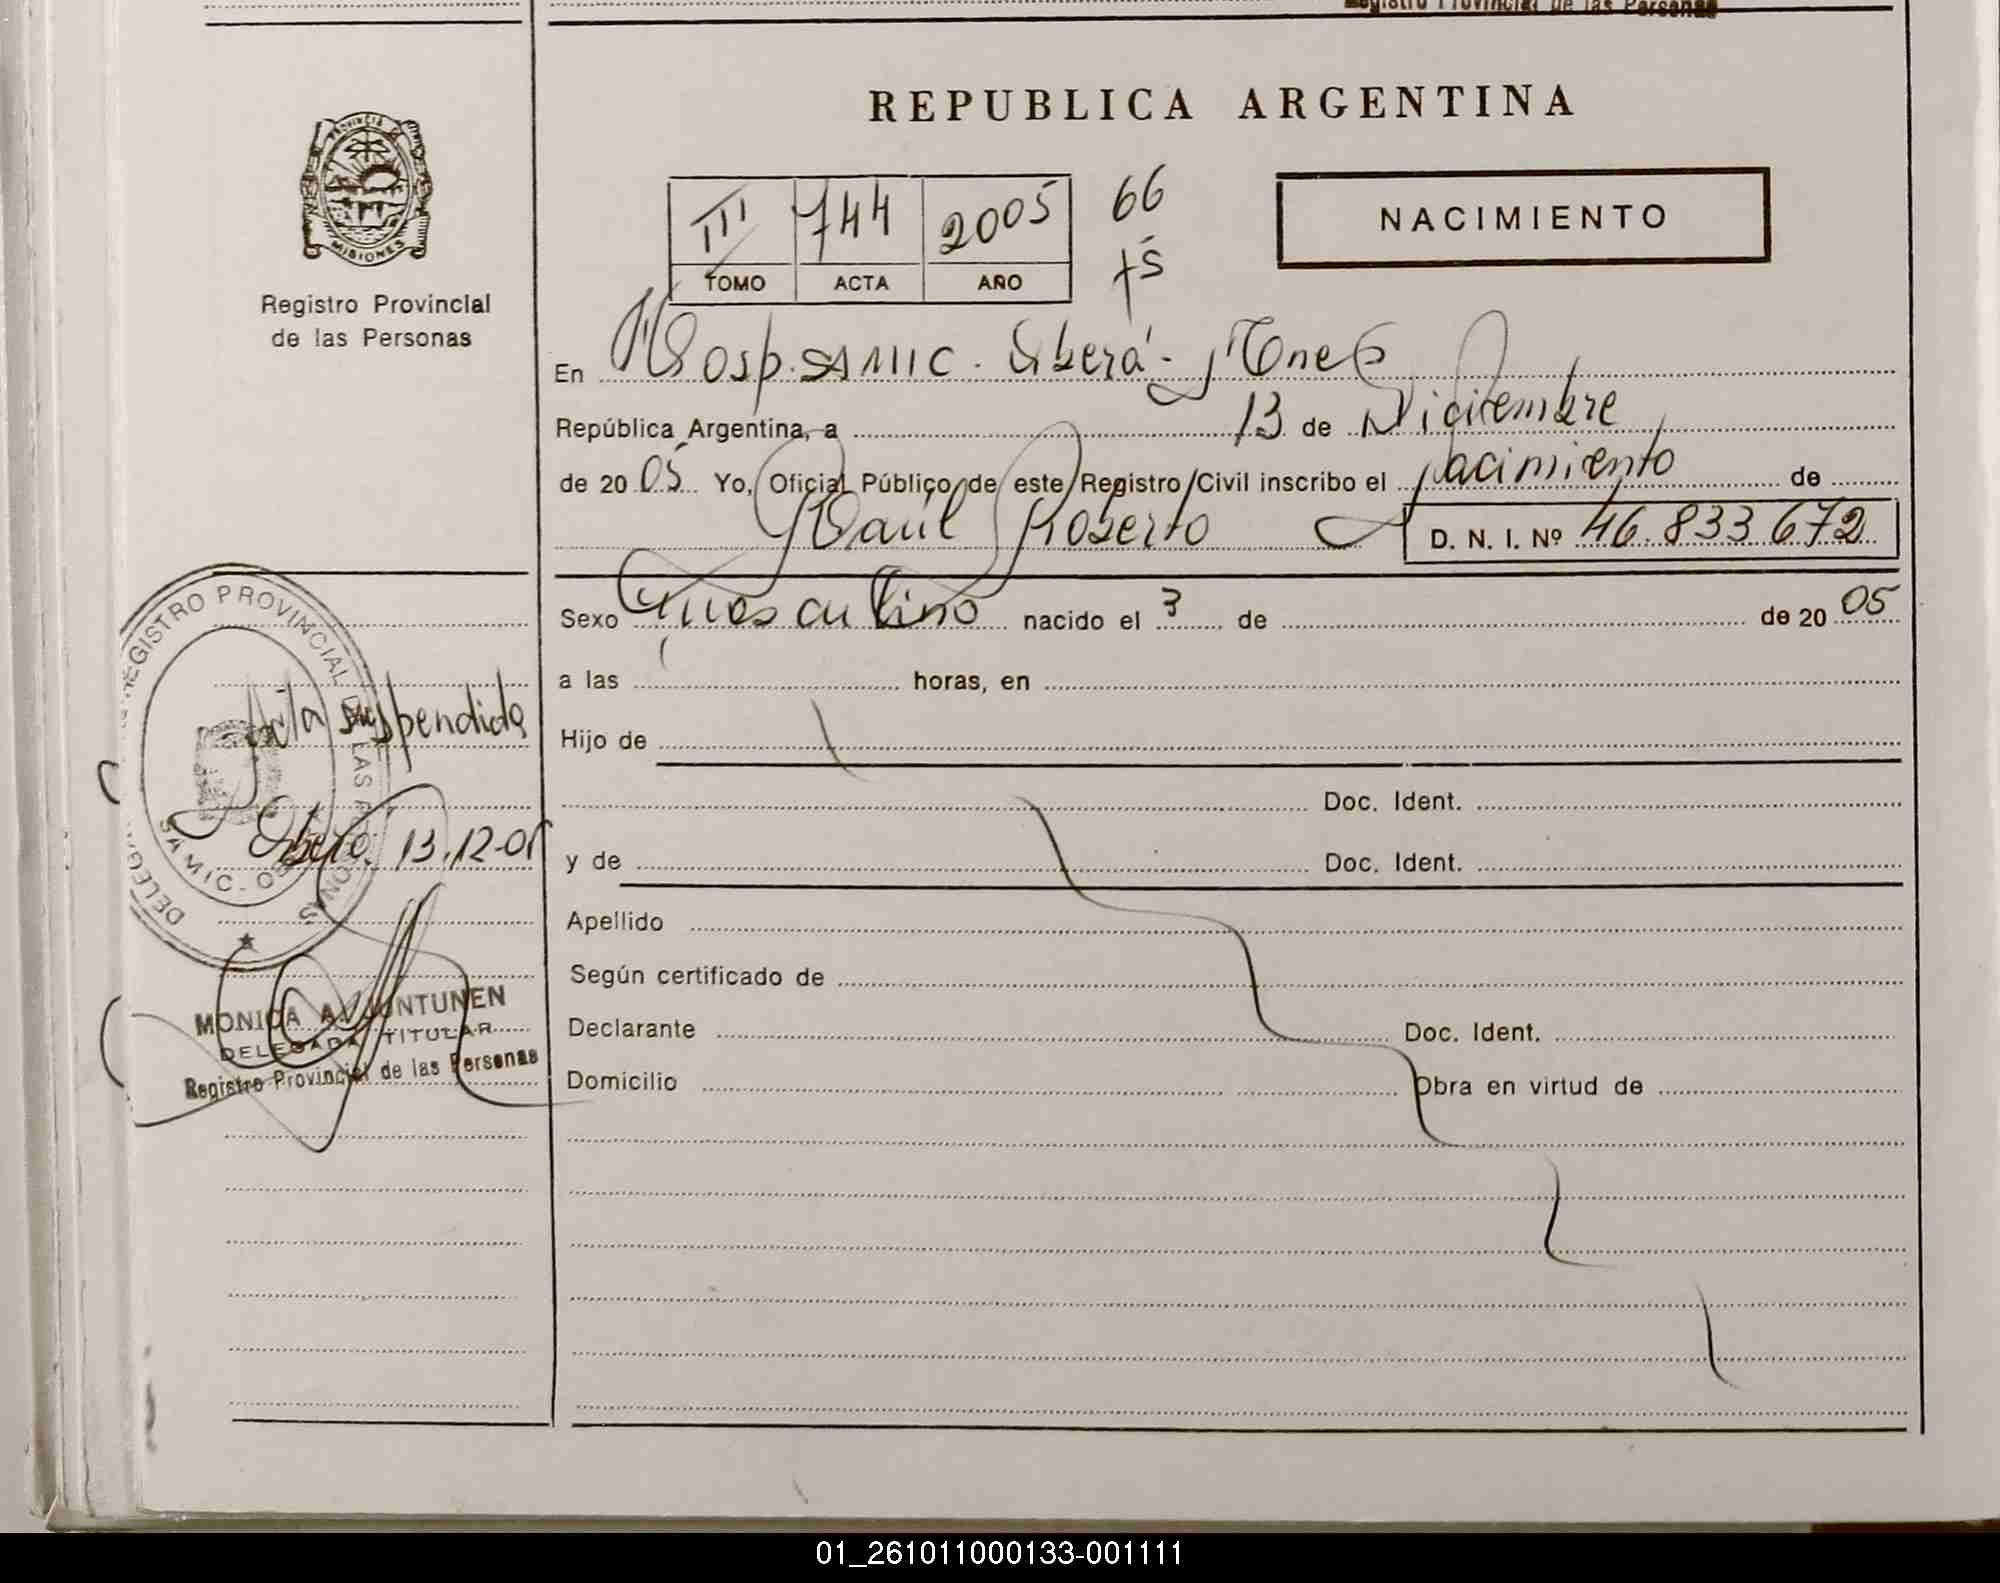 Registro Provincial de las Personas
REPUBLICA ARGENTINA
PROVINCIA DE
MISIONES
Registro Provincial
de las Personas
III 744 2005 66
TOMO ACTA AÑO
NACIMIENTO
En Hosp. SAMIC - Oberá - Mnes
República Argentina, a 13 de Diciembre
de 20 05 Yo, Oficial Público de este Registro Civil inscribo el nacimiento de
Raúl Roberto D. N. I. Nº 46.833.672
Sexo Masculino nacido el 3 de de 20 05
a las horas, en
Hijo de
Doc. Ident.
y de Doc. Ident.
Apellido
Según certificado de
Declarante Doc. Ident.
Domicilio Obra en virtud de
REGISTRO PROVINCIAL DE LAS PERSONAS
SAMIC - OBERA
Acta suspendida
Oberá, 13.12-05
MONICA A. JUNTUNEN
DELEGADA TITULAR
Registro Provincial de las Personas
01_261011000133-001111